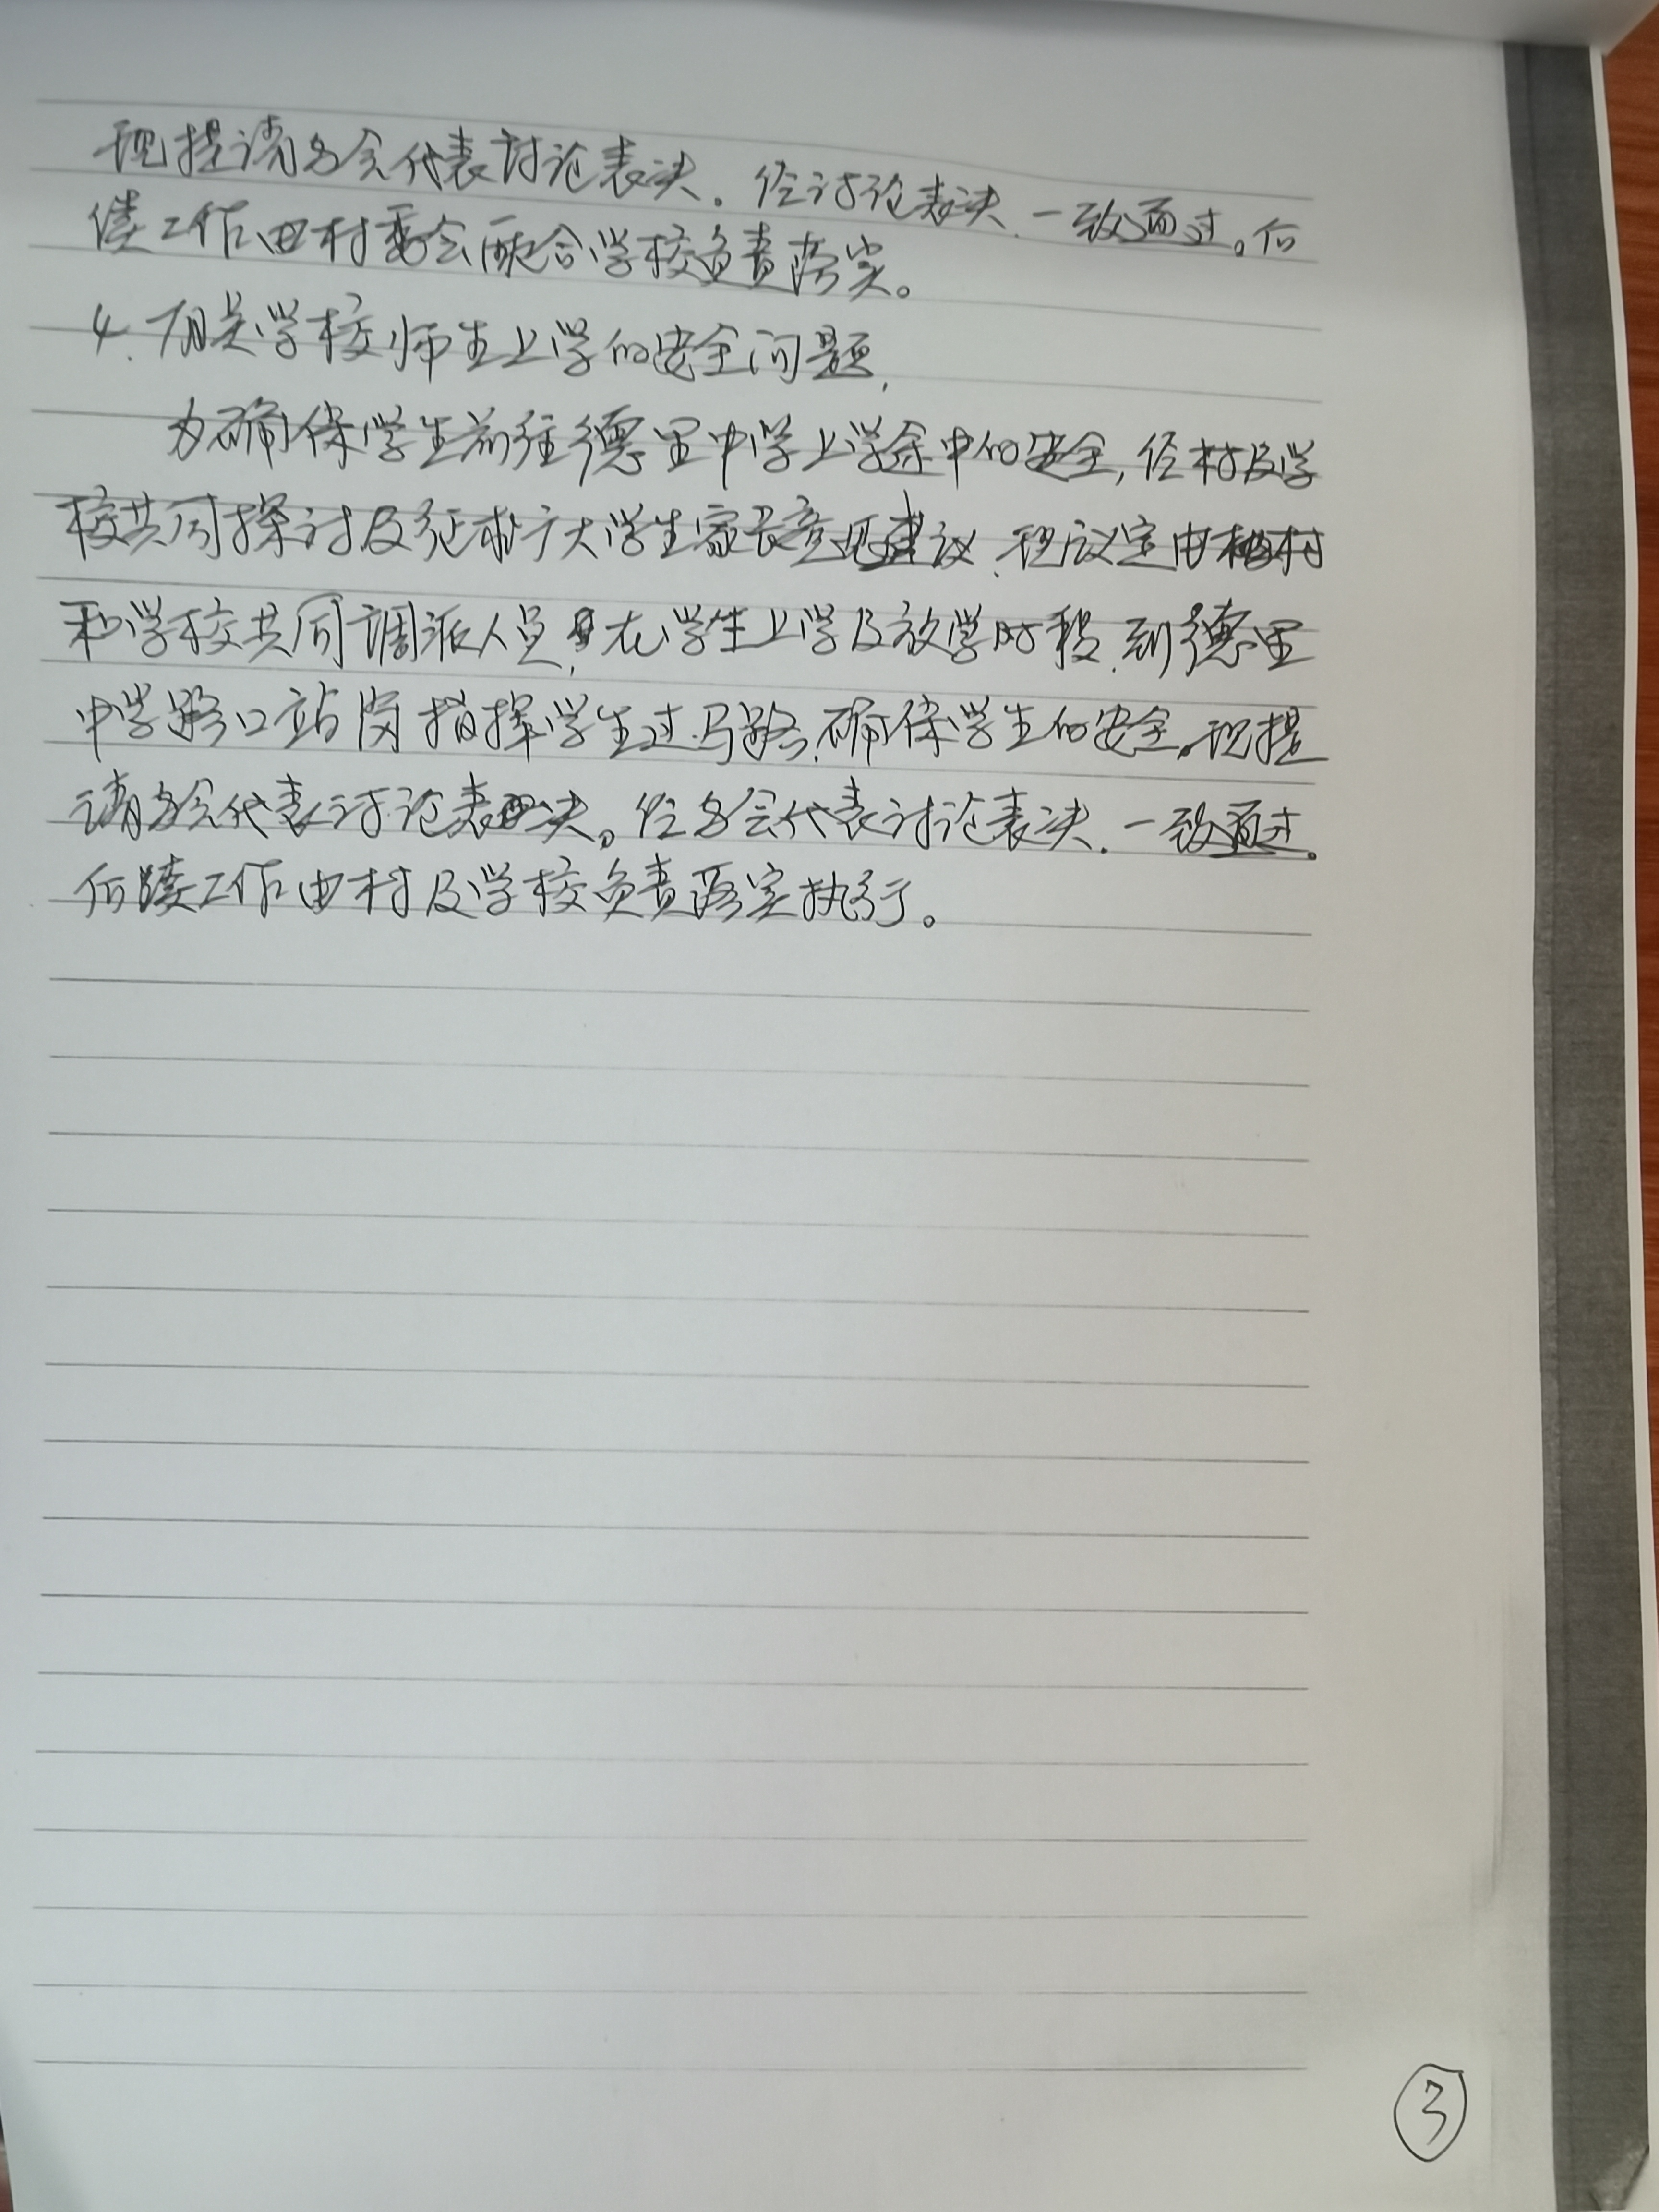 现提请与会代表讨论表决。经讨论表决、一致通过。后
续工作由村委会配合学校负责落实。
4、有关学校师生上学的安全问题,
为确保学生前往德里中学上学途中的安全,经村及学
校共同探讨及征求广大学生家长意见建议、现议定由村
和学校共同调派人员,在学生上学及放学时段、到德里
中学路口站岗指挥学生过马路、确保学生的安全。现提
请与会代表讨论表决。经与会代表讨论表决、一致通过。
后续工作由村及学校负责落实执行。
3